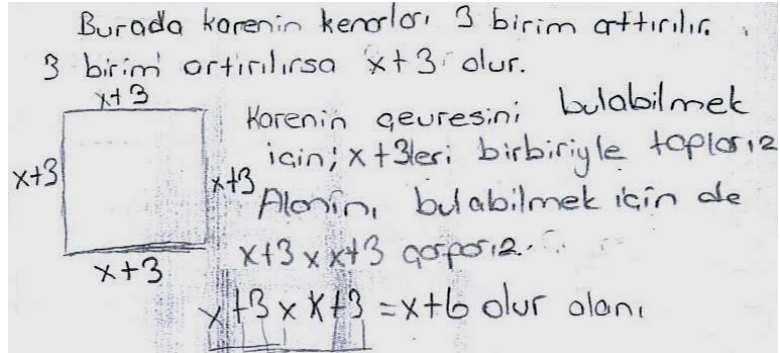 Burada karenin kenarları 3 birim arttırılır.
3 birim artırılırsa x+3 olur.
x+3
x+3
x+3
x+3
Karenin çevresini bulabilmek
için; x+3leri birbiriyle toplarız
Alanını bulabilmek için de
x+3 x x+3 çarparız.
x+3 x x+3 = x+6 olur alanı